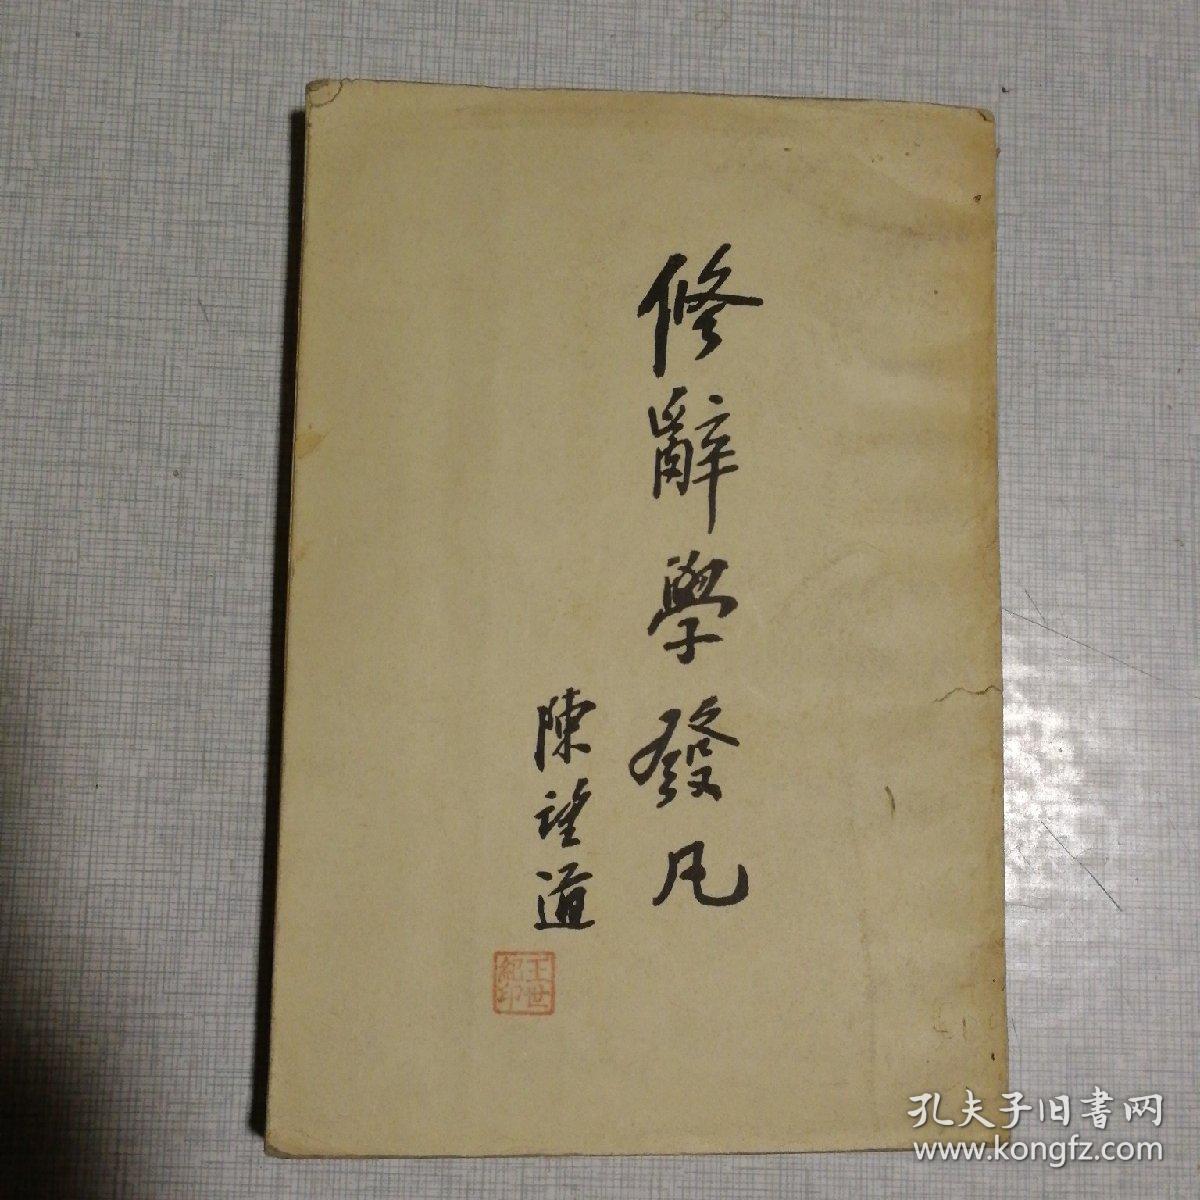 修辭學發凡
陳望道
王世
紀印
孔夫子旧書网
www.kongfz.com